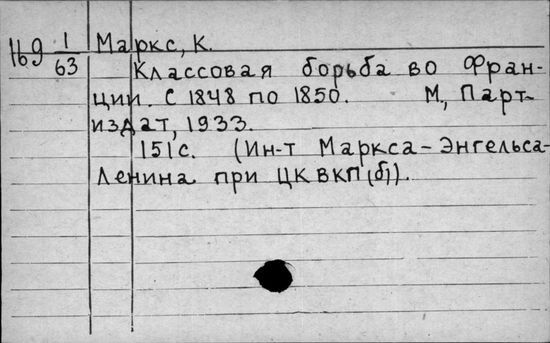 169 1/63 Маркс, К.
Классовая борьба во Фран-
ции. С 1848 по 1850. М., Парт-
издат, 1933.
151с. (Ин-т Маркса-Энгельса-
Ленина при ЦК ВКП(б)).